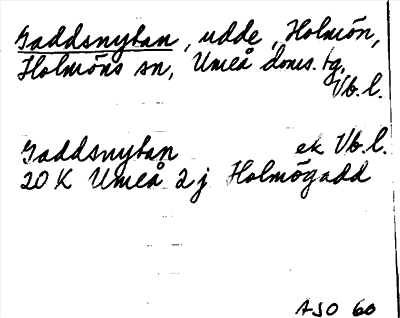 Gaddsnytan, udde, Holmön,
Holmöns sn, Umeå doms. tg,
Vb.l.
Gaddsnytan ek Vb.l.
20 K Umeå 2 j Holmögadd
ASO 60